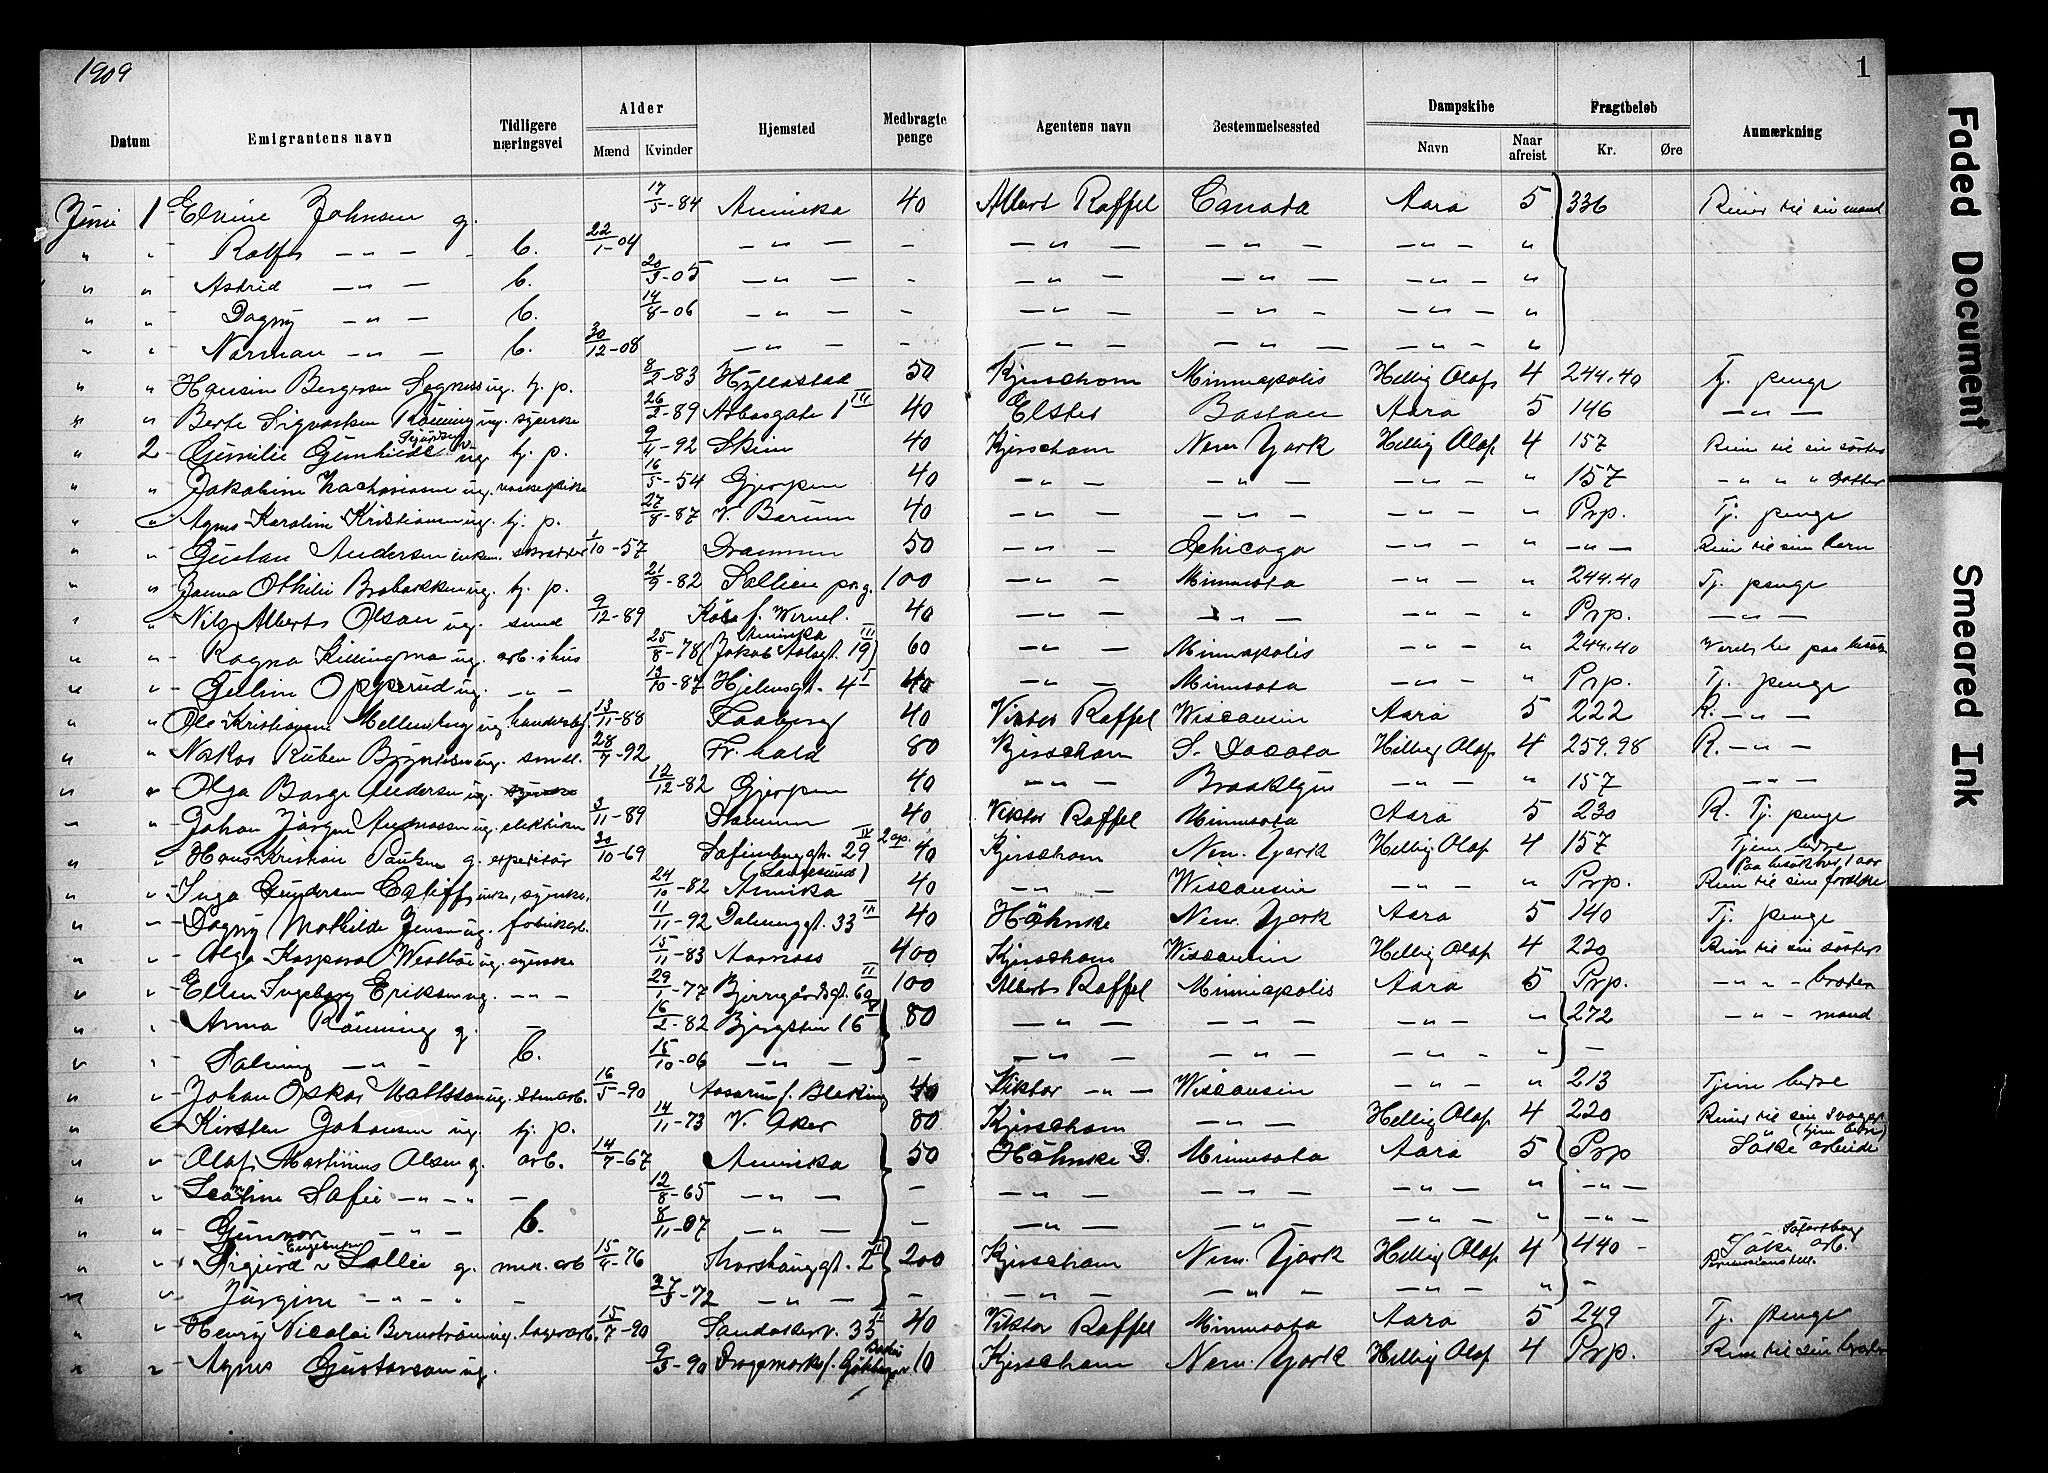 1909
1
Datum Emigrantens navn Tidligere næringsvei Alder Mænd Kvinder Hjemsted Medbragte penge Agentens navn Bestemmelsessted Dampskibe Navn Naar afreist Fragtbeløb Kr. Øre Anmærkning
Juni 1 Elvine Johnsen g. 17/5-84 Amerika 40 Albert Raffel Canada Aaro 5 336 Reiser til sin mand
" " Rolf — " — b. 22/1-04 — " — - — " — — " — — " — "
" " Astrid — " — b. 20/3-05 — " — - — " — — " — — " — "
" " Dagny — " — b. 14/8-06 — " — - — " — — " — — " — "
" " Norman — " — b. 30/12-08 — " — - — " — — " — — " — "
" " Hansine Bergersen ug. tj. p. 8/2-83 Hyllestad 50 Kjerschow Minneapolis Hellig Olaf 4 244.40 tj. penge
" " Berte Sigvartsen Rönning ug. syerske 26/2-89 1 III 40 Elster Boston Aaro 5 146 — " —
" 2 Gunhilde ug. tj. p. 9/4-92 Skien 40 Kjerschow New York Hellig Olaf 4 157 Reiser til sin söster
" " Jakobine Zachariasen ug. 16/5-54 Gjerpen 40 — " — — " — — " — " 157 — " " " datter
" " Agnes Karoline Kristiansen ug. tj. p. 27/8-87 V. Bærum 40 — " — — " — — " — " Prp. Tj. penge
" " Gustav Andersen enkem. skrædder 1/10-57 Drammen 50 — " — Chicago — " — " — " — Reiser til sine barn
" " Janna Othilie ug. tj. p. 21/9-82 100 — " — Minnesota — " — " 244.40 Tj. penge
" " Nils Albert Olsson ug. smed 9/12-89 40 — " — — " — — " — " Prp. — " —
" " Ragna Killingmo ug. arb. i hus 25/8-78 Amerika (Jakob Aalsgt. 19 III) 60 — " — Minneapolis — " — " 244.40
" " Gutine Opperud ug. — " — 13/10-87 Hjelmsgt. 4 I 40 — " — Minnesota — " — " Prp. Tj. penge
" " Ole Kristiansen Mellemberg ug. 13/11-88 Faaberg 40 Viktor Raffel Wisconsin Aaro 5 222 R. — " —
" " Ruben ug. smed. 28/7-92 Fr.hald 80 Kjerschow S. Dacota Hellig Olaf 4 259.98 R. — " —
" " Olga Borge Andersen ug. syerske 12/12-82 Gjerpen 40 — " — Brooklyn — " — " 157 — " —
" " Johan Jörgen Andreassen ug. elektriker 3/11-89 Drammen 40 Viktor Raffel Minnesota Aaro 5 230 R. Tj. penge
" " Hans Kristian Paulsen g. expeditör 30/10-69 Sofienberggt. 29 IV 40 Kjerschow New York Hellig Olaf 4 157 Tjene bedre
" " Inga Gundersen enke, syerske. 24/10-82 (Langesund) Amerika 40 — " — Wisconsin — " — " Prp. Paa besök her, 1 aar Reiser til sine foreldre
" " Dagny Mathilde Jensen ug. fabrikarb. 11/11-92 Dælenenggt. 33 III 40 Höhnke New York Aaro 5 140 Tj. penge
" " Olga Kaspara ug. syerske 15/11-83 Aarnæs 400 Kjerschow Wisconsin Hellig Olaf 4 220 Reiser til sin söster
" " Ellen Ingeborg Eriksen ug. — " — 29/1-77 II 100 Albert Raffel Minneapolis Aaro 5 Prp. — " " - broder
" " Anna Rönning g. — 16/2-82 16 80 — " — — " — — " — " 272 — " " - mand
" " Solveig — " — b. 15/10-06 — " — - — " — — " — — " — " —
" " Johan Oskar Mattsson ug. stenarb. 16/5-90 Asarum f. Bleking 40 Viktor — " — Wisconsin — " — " 213 Tjene bedre
" " Kirsten Johansen ug. tj. p. 14/11-73 V. Aker 80 Kjerschow — " — Hellig Olaf 4 220 Reiser til sin svoger (tjene bedre)
" " Olaf Martinius Olsen g. arb. 14/7-67 Amerika 50 Höhnke D. Minnesota Aaro 5 Prp Söke arbeide
" " Sofie — " — " - 12/8-65 — " — - — " — — " — — " — " — " —
" " Gunvor — " — b. 8/11-07 — " — - — " — — " — — " — " — " —
" " Sigurd Engebretsen Sollie g. arb 15/4-76 Thorshauggt. 2 II 200 Kjerschow New York Hellig Olaf 4 440 - Söke arb.
" " Jörgine — " — " - 27/3-72 — " — - — " — — " — — " — " —
" " Henry Nicolai Bernström ug. lagerarb. 15/7-90 Sandakerv. 33 II 40 Viktor Raffel Minnesota Aaro 5 249 Tj. penge
" " Agnes Gustavson ug. 9/3-90 10 Kjerschow New York Hellig Olaf 4 Prp. Reiser til sin broder
Faded Document
Smeared Ink